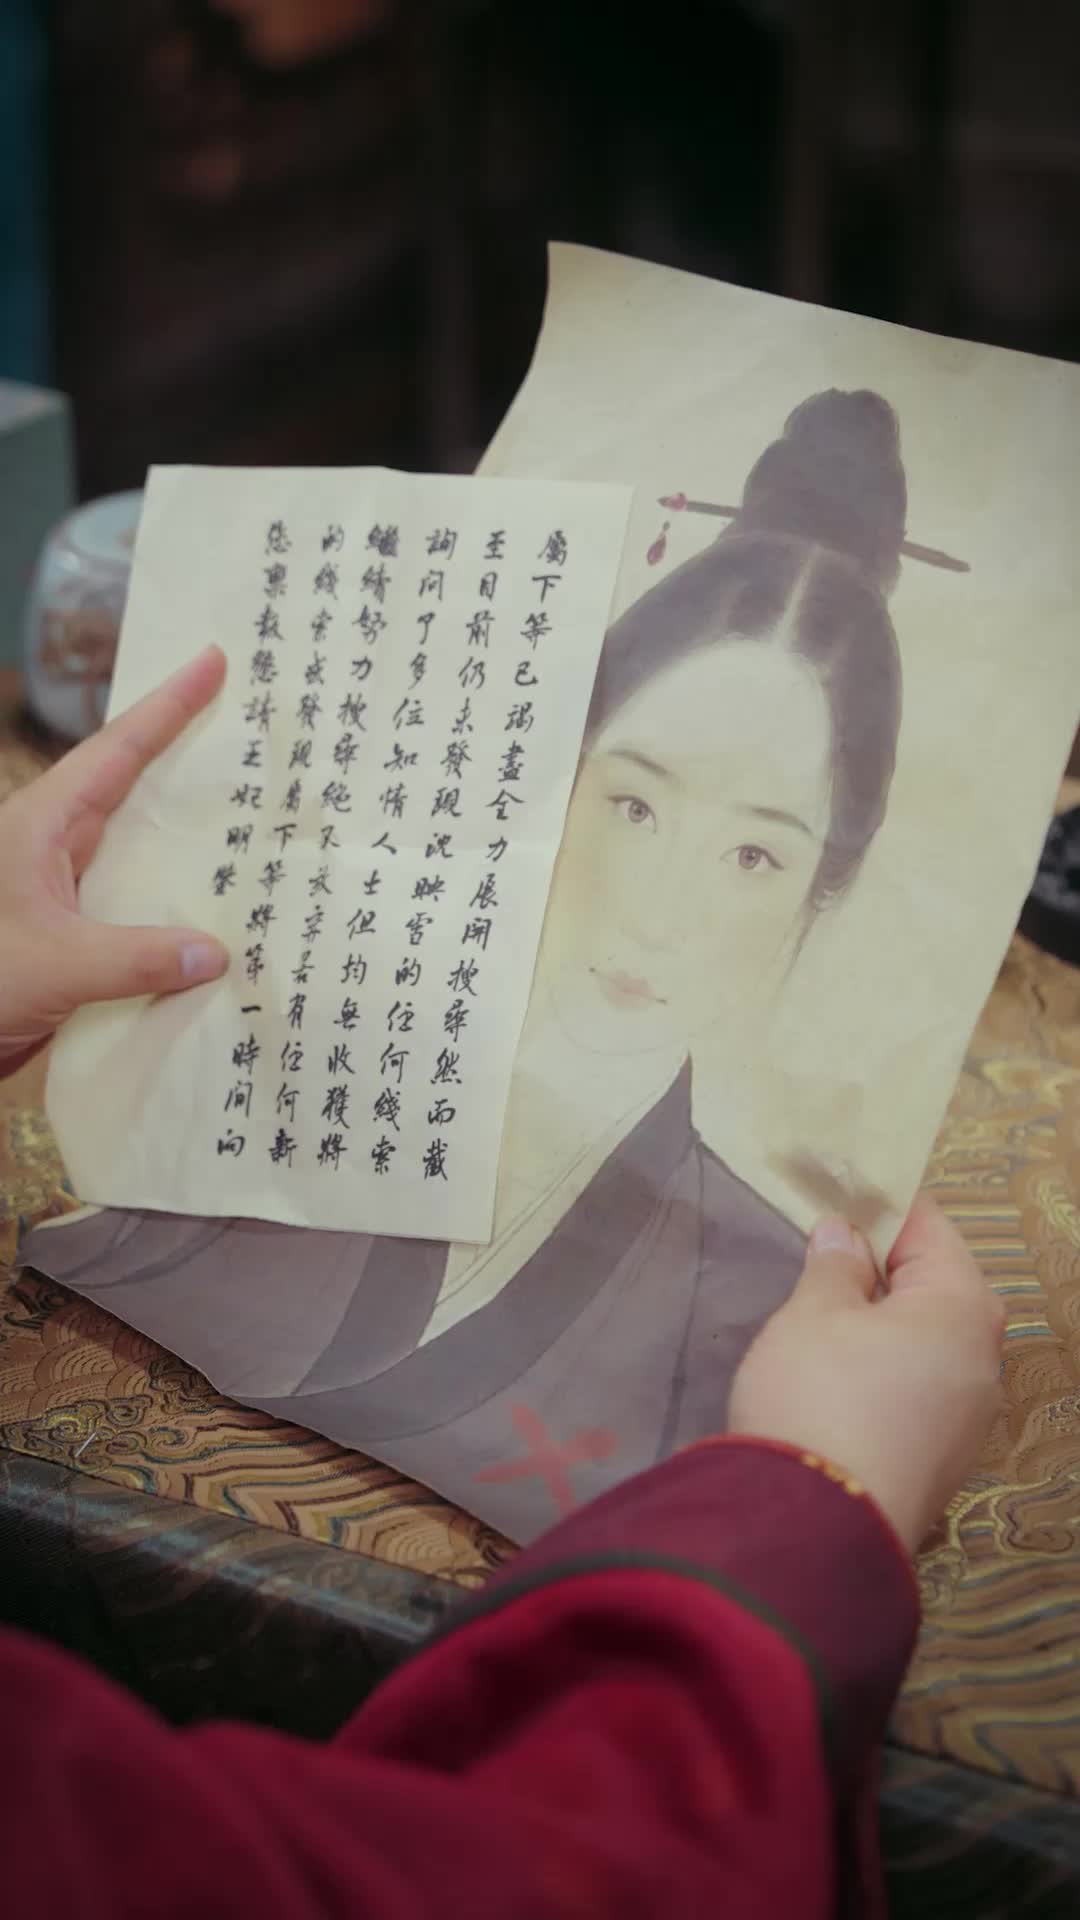 屬下等已竭盡全力展開搜尋然而截
至目前仍未發現沈映雪的任何線索
詢問了多位知情人士但均無收獲將
繼續努力搜尋絕不放弃若有任何新
的线索或發現屬下等將第一時間向
您禀报懇請王妃明鉴